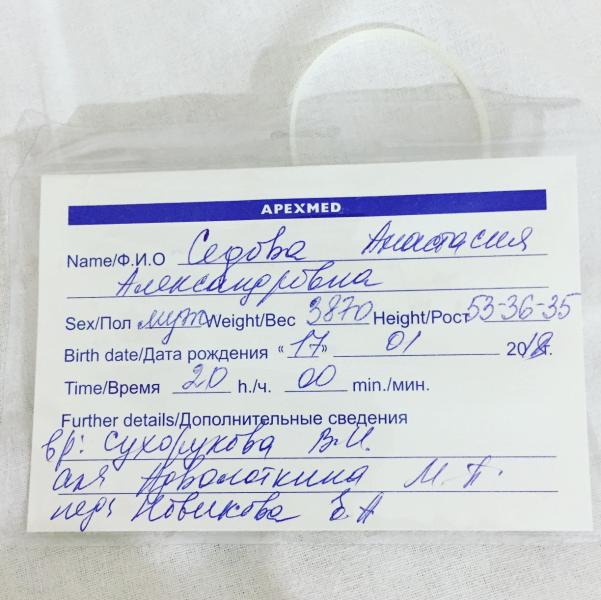 APEXMED
Name/Ф.И.О Седова Анастасия
Александровна
Sex/Пол муж Weight/Вес 3870 Height/Рост 53-36-35
Birth date/Дата рождения «17» 01 2018г.
Time/Время 20 h./ч. 00 min./мин.
Further details/Дополнительные сведения
вр: Сухорукова В.И.
М.П.
Новикова Е.А